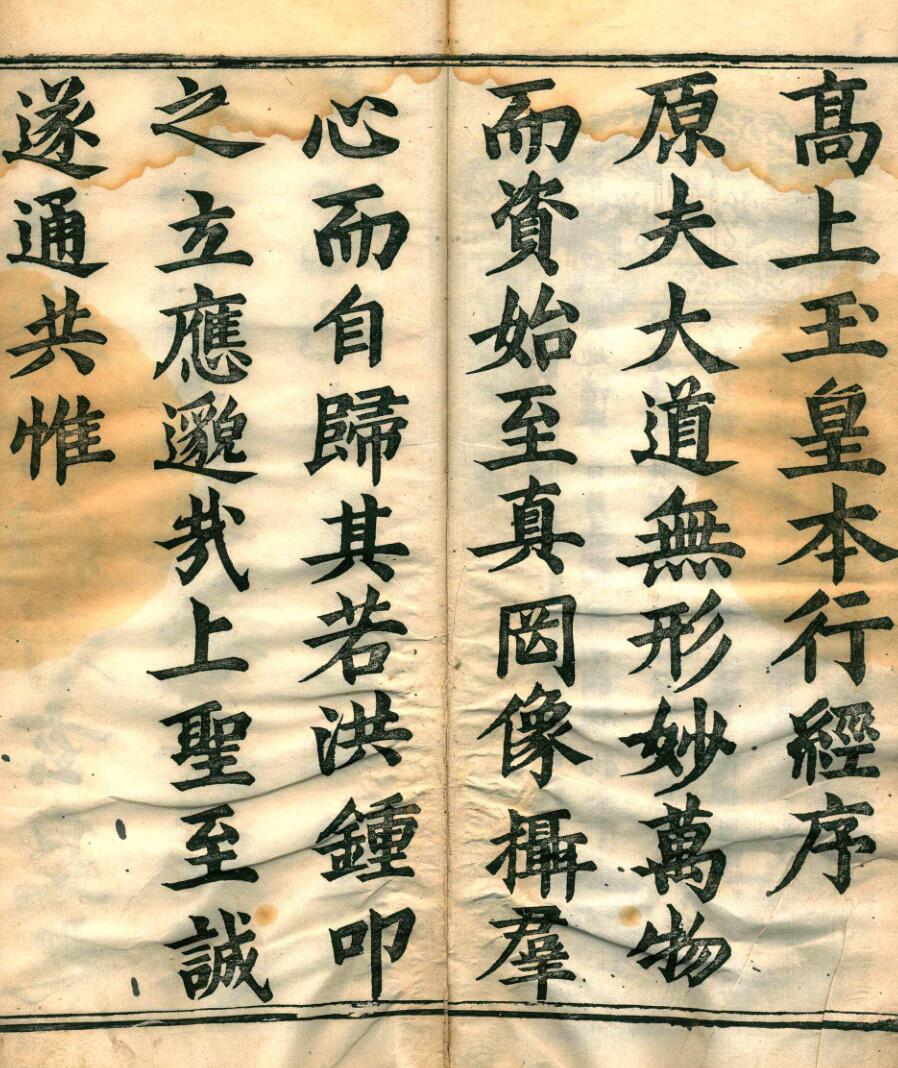 高上玉皇本行經序
原夫大道無形妙萬物
而資始至真罔像攝羣
心而自歸其若洪鍾叩
之立應邈哉上聖至誠
遂通共惟